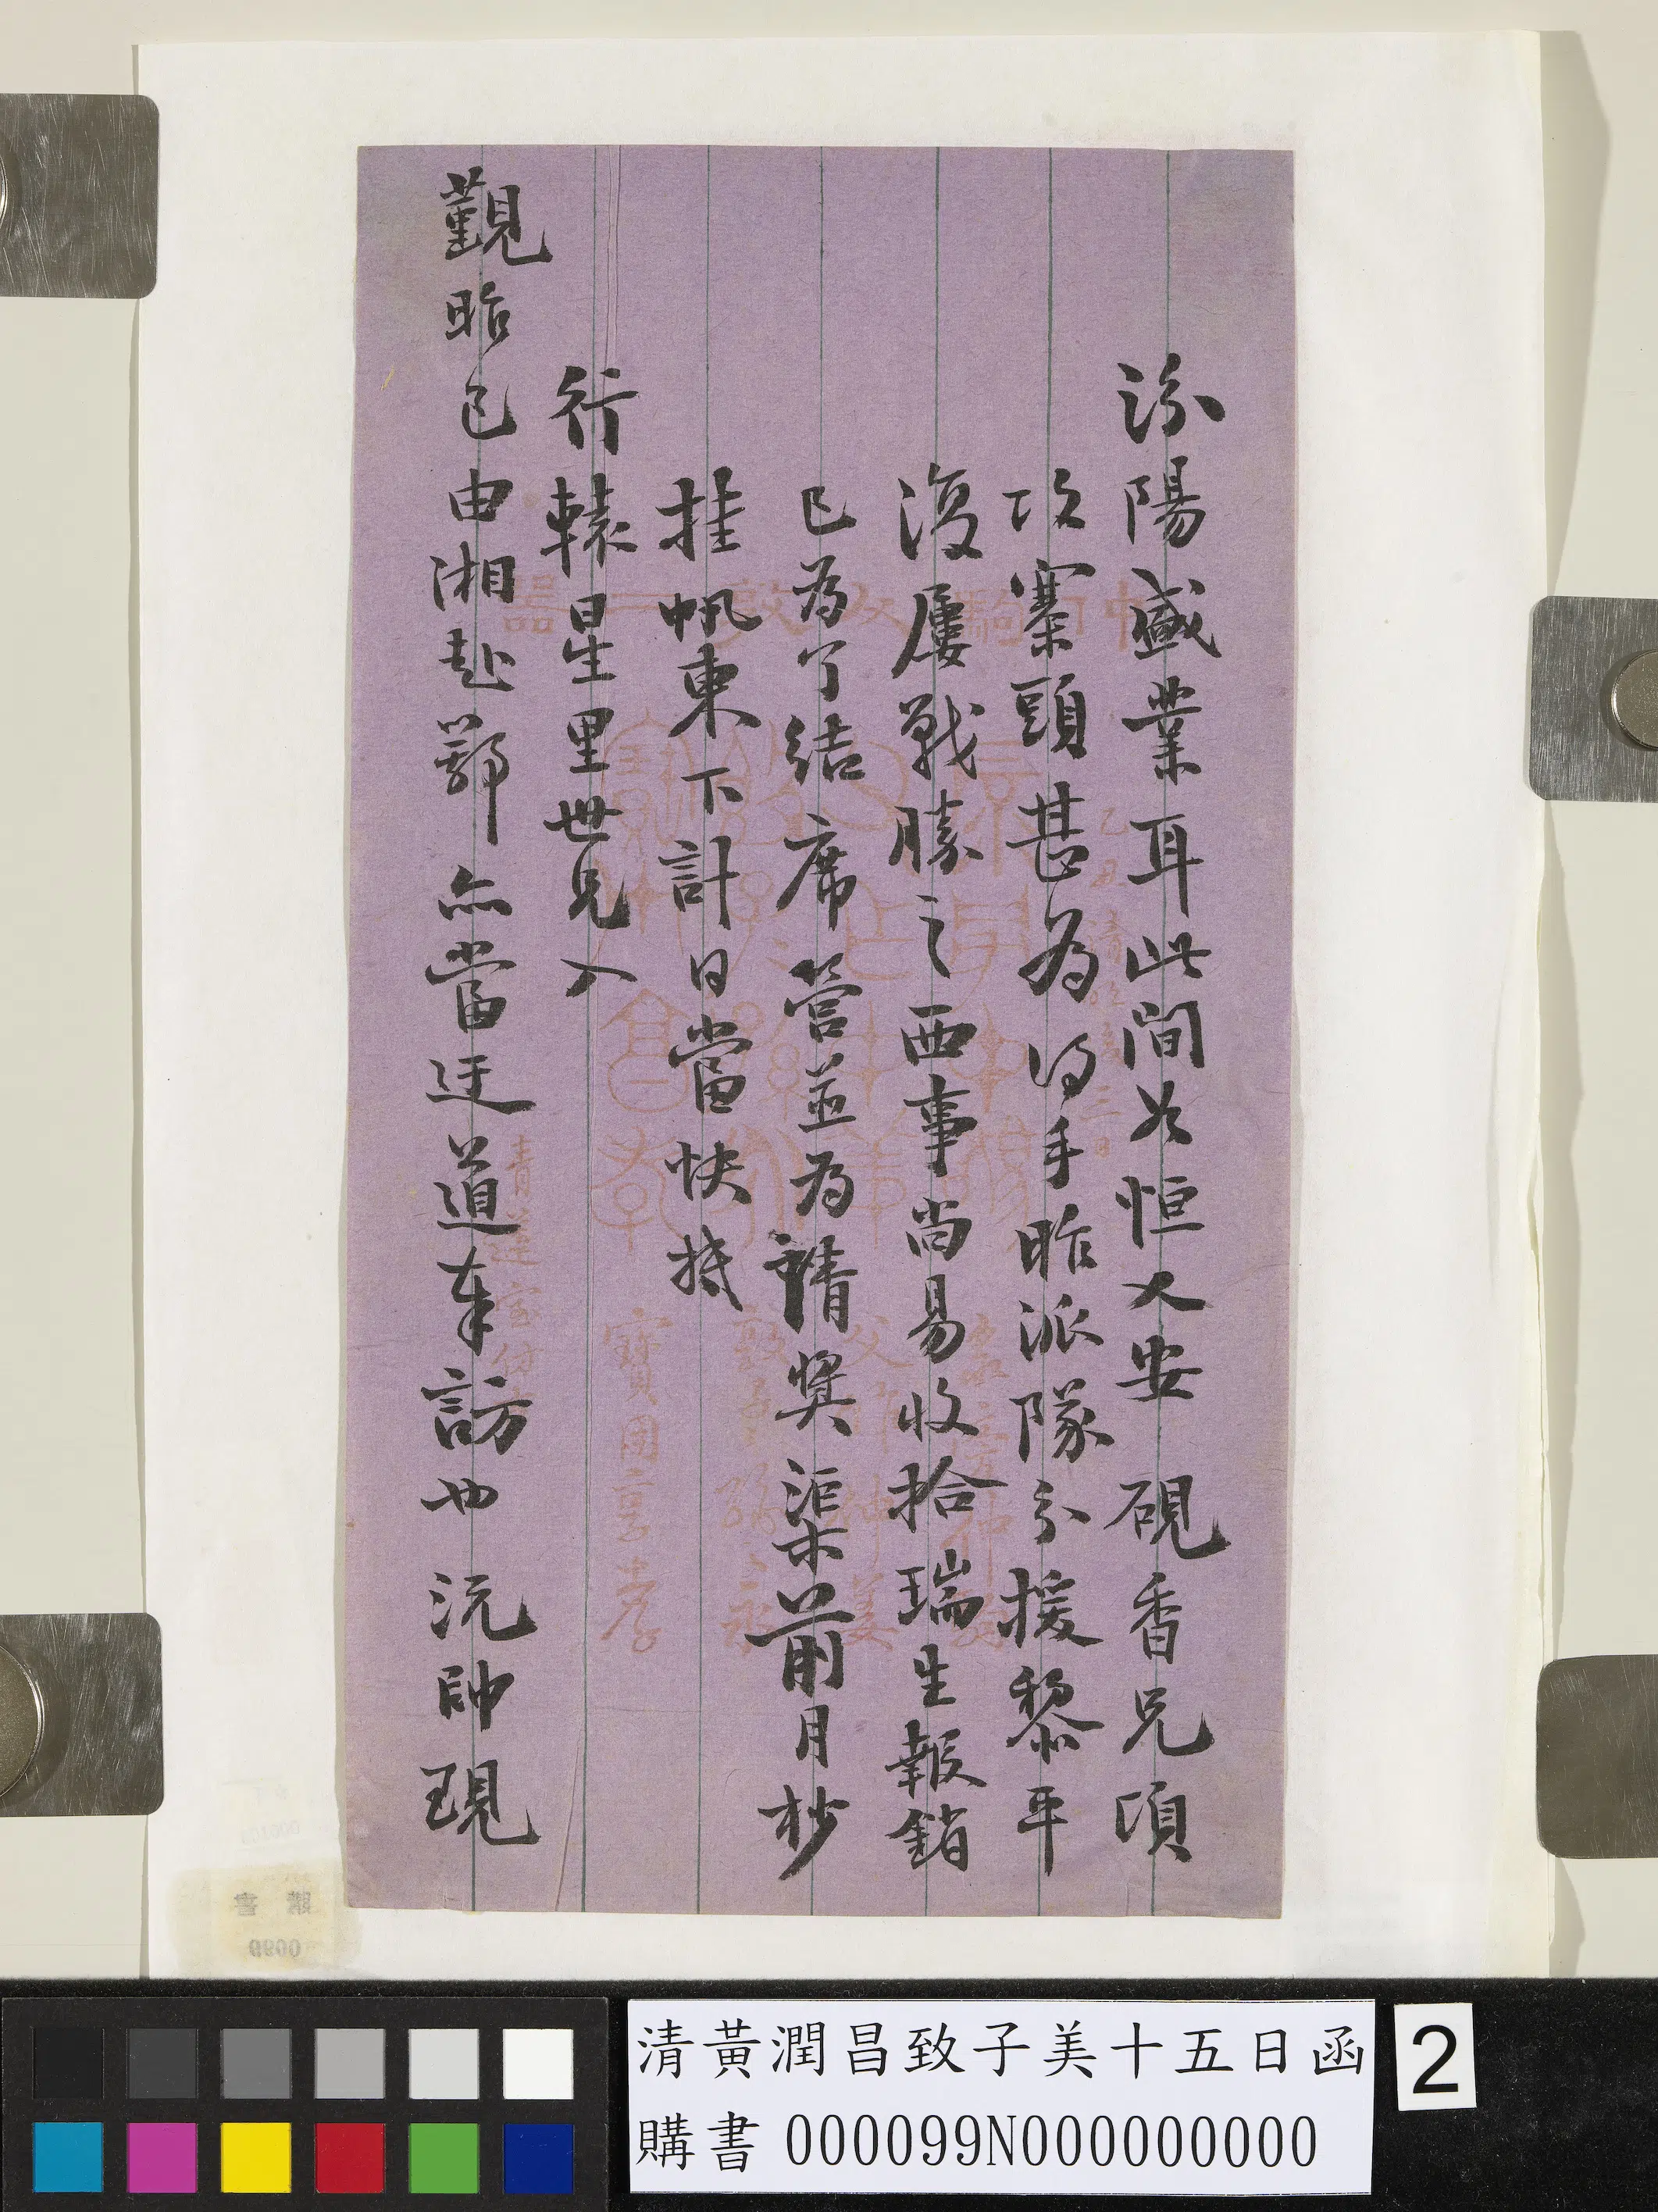 汾陽盛業耳此間如恒大安硯香兄頃
攻寨頭甚為得手昨派隊分援黎平
復屢戰勝之西事尚易收拾瑞生報銷
已為了結席管並為請獎渠前月杪
挂帆東下計日當快抵
行轅星里世兄入
觀昨已由湘赴鄂亦當迂道奉訪也沅帥現
清黃潤昌致子美十五日函
購書 000099N000000000
2